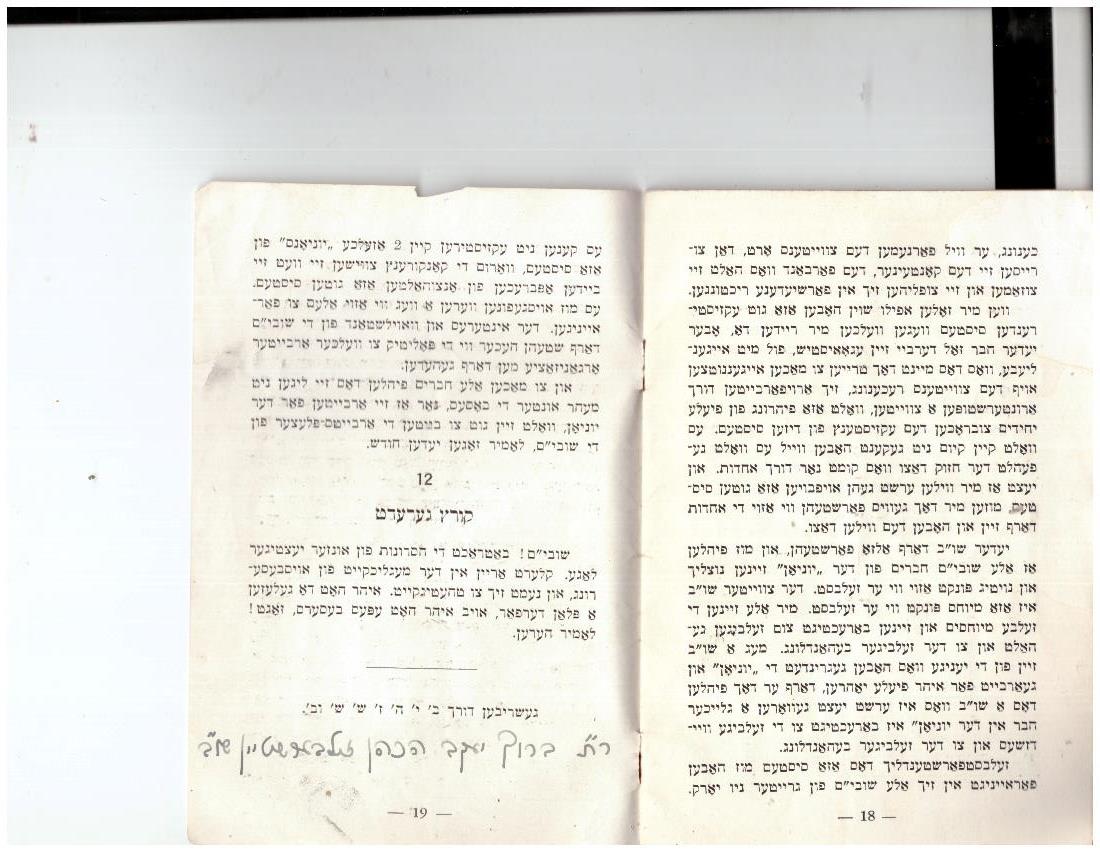 כענונג, ער וויל פארנעמען דעם צווייטענס ארט, דאן צו־
רייסען זיי דעם קאנטעינער, דעם פארבאנד וואס האלט זיי
צוזאמען און זיי צופליהען זיך אין פארשיעדענע ריכטונגען.
ווען מיר זאלען אפילו שוין האבען אזא גוט עקזיסטי־
רענדען סיסטעם וועגען וועלכען מיר ריידען דא, אבער
יעדער חבר זאל דערביי זיין עגאאיסטיש, פול מיט אייגענ־
ליעבע, וואס דאס מיינט דאך טרייען צו מאכען אייגענוצען
אויף דעם צווייטענס רעכענונג, זיך ארויפארבייטען דורך
ארונטערשטופען א צווייטען, וואלט אזא פיהרונג פון פיעלע
יחידים צובראכען דעם עקזיסטענץ פון דיזען סיסטעם. עס
וואלט קיין קיום ניט געקענט האבען ווייל עס וואלט גע־
פעהלט דער חזוק דאצו וואס קומט נאר דורך אחדות. און
יעצט אז מיר ווילען ערשט געהן אויפבויען אזא גוטען סיס־
טעם, מוזען מיר דאך געוויס פארשטעהן ווי אזוי די אחדות
דארף זיין און האבען דעם ווילען דאצו.
יעדער שו״ב דארף אלזא פארשטעהן, און מוז פיהלען
אז אלע שובי״ם חברים פון דער „יוניאן״ זיינען נוצליך
און נויטיג פונקט אזוי ווי ער זעלבסט. דער צווייטער שו״ב
איז אזא מיוחס פונקט ווי ער זעלבסט. מיר אלע זיינען די
זעלבע מיוחסים און זיינען בארעכטיגט צום זעלבעגען גע־
האלט און צו דער זעלביגער בעהאנדלונג. מעג א שו״ב
זיין פון די יעניגע וואס האבען געגרינדעט די „יוניאן״ און
געארבייט פאר איהר פיעלע יאהרען, דארף ער דאך פיהלען
דאס א שו״ב וואס איז ערשט יעצט געווארען א גלייכער
חבר אין דער יוניאן״ איז בארעכטיגט צו די זעלביגע וויי־
דזשעס און צו דער זעלביגער בעהאנדלונג.
זעלבסטפארשטענדליך דאס אזא סיסטעם מוז האבען
פאראייניגט אין זיך אלע שובי״ם פון גרייטער ניו יארק.
— 18 —
עס קענען ניט עקזיסטירען קיין 2 אזעלכע „יוניאנס״ פון
אזא סיסטעם, ווארום די קאנקורענץ צווישען זיי וועט זיי
ביידען אפברעכען פון אנצוהאלטען אזא גוטען סיסטעם.
עס מוז אויסגעפונען ווערען א וועג ווי אזוי אלעם צו פאר־
אייניגען. דער אינטערעס און וואוילשטאנד פון די שובי״ם
דארף שטעהן העכער ווי די פאליטיק צו וועלכער ארבייטער
ארגאניזאציע מען דארף געהערען.
און צו מאכען אלע חברים פיהלען דאס זיי ליגען ניט
מעהר אונטער די באסעס, נאר אז זיי ארבייטען פאר דער
יוניאן, וואלט זיין גוט צו בייטען די ארבייטס־פלעצער פון
די שובי״ם, לאמיר זאגען יעדען חודש.
12
קורץ גערעדט
שובי״ם! באטראכט די חסרונות פון אונזער יעצטיגער
לאגע. קלערט אריין אין דער מעגליכקייט פון אויסבעסע־
רונג, און נעמט זיך צו טהעטיגקייט. איהר האט דא געלעזען
א פלאן דערפאר, אויב איהר האט עפעס בעסערס, זאגט!
לאמיר הערען.
געשריבען דורך ב׳ י׳ ה׳ ז׳ ש׳ ש׳ וב׳.
ר״ת ברוך יעקב הכהן זילבערשטיין שו״ב
— 19 —